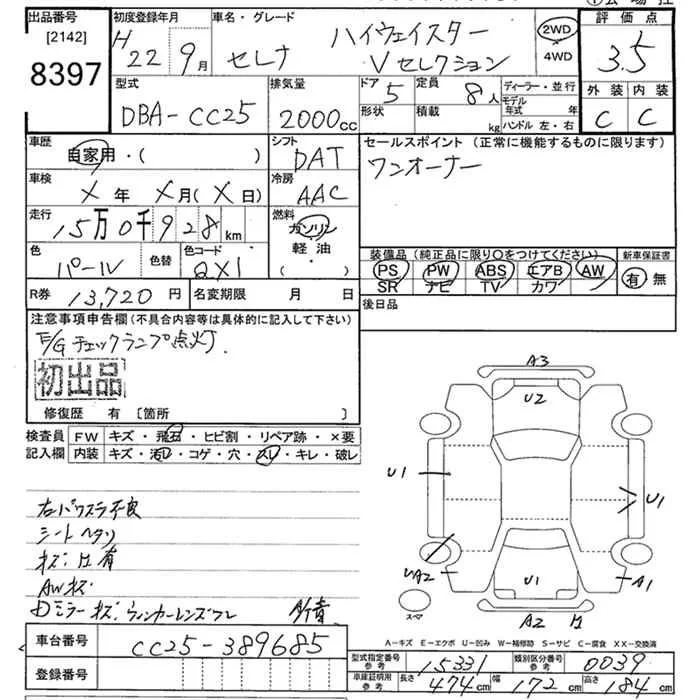 出品番号 初度登録年月 車名・グレード 評価点
[2142]
8397
H22 9月 セレナ ハイウェイスター Vセレクション 2WD 4WD 3.5
型式 排気量 ドア 定員 ディーラー・並行 外装 内装
DBA-CC25 2000cc 5 8人 モデル年式 年 C C
形状 積載 kg ハンドル 左・右
車歴 シフト セールスポイント (正常に機能するものに限ります)
自家用・( ) DAT ワンオーナー
車検 冷房
X年 X月(X日) AAC
走行 燃料
15万0千928km ガソリン
軽油・( )
色 色替 色コード 装備品(純正品に限り○をつけてください) 新車保証書
パール QX1 PS PW ABS エアB AW 有 無
SR ナビ TV カワ
R券 13,720円 名変期限 月 日 後日品
注意事項申告欄(不具合内容等は具体的に記入して下さい)
E/Gチェックランプ点灯.
初出品
修復歴 有 [箇所 ]
検査員 FW キズ・飛石・ヒビ割・リペア跡・×要
記入欄 内装 キズ・汚レ・コゲ・穴・スレ・キレ・破レ
右パワスラ不良
シートヘタリ
キズ:凹有
AWキズ
Dミラーキズ:ウィンカーレンズワレ
A3
U2
U1 U1
UA2 U1 A1
スペア A2 凹
A-キズ E-エクボ U-凹み W-補修跡 S-サビ C-腐食 XX-交換済
車台番号 CC25-389685
型式指定番号 参考 15331 類別区分番号 参考 0039
登録番号
車庫証明用 参考 長さ 474cm 幅 172cm 高さ 184cm